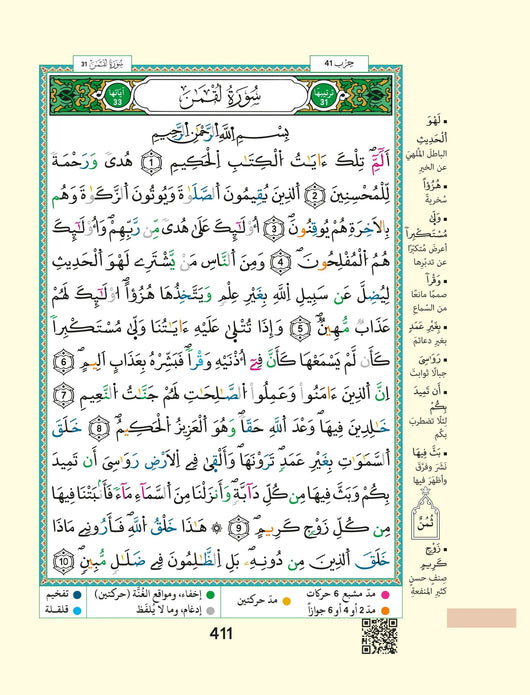 سُورَةُ لُقْمَٰنَ 31
حِزْب 41
آيَاتُهَا 33
سُورَةُ لُقْمَٰنَ
تَرْتِيبُهَا 31
بِسْمِ اِللَّهِ اِلرَّحْمَٰنِ اِلرَّحِيمِ
أَلَٓمِّٓۖ تِلْكَ ءَايَٰتُ اُلْكِتَٰبِ اِلْحَكِيمِ 1 هُدىً وَرَحْمَةً
لِّلْمُحْسِنِينَ 2 اَلذِينَ يُقِيمُونَ اَلصَّلَوٰةَ وَيُوتُونَ اَلزَّكَوٰةَ وَهُم
بِالَاخِرَةِ هُمْ يُوقِنُونَۖ 3 أُوْلَٰٓئِكَ عَلَىٰ هُدىً مِّن رَّبِّهِمْۖ وَأُوْلَٰٓئِكَ
هُمُ اُلْمُفْلِحُونَۖ 4 وَمِنَ اَلنَّاسِ مَنْ يَّشْتَرِے لَهْوَ اَلْحَدِيثِ
لِيُضِلَّ عَن سَبِيلِ اِللَّهِ بِغَيْرِ عِلْمٖ وَيَتَّخِذُهَا هُزُؤاًۖ اُوْلَٰٓئِكَ لَهُمْ
عَذَابٞ مُّهِينٞۖ 5 وَإِذَا تُتْلَىٰ عَلَيْهِ ءَايَٰتُنَا وَلَّىٰ مُسْتَكْبِراٗ
كَأَن لَّمْ يَسْمَعْهَا كَأَنَّ فِےٓ أُذْنَيْهِ وَقْراٗۖ فَبَشِّرْهُ بِعَذَابٍ اَلِيمٍۖ 6
اِنَّ اَلذِينَ ءَامَنُواْ وَعَمِلُواْ اُلصَّٰلِحَٰتِ لَهُمْ جَنَّٰتُ اُلنَّعِيمِ 7
خَٰلِدِينَ فِيهَا وَعْدَ اَللَّهِ حَقّاٗۖ وَهُوَ اَلْعَزِيزُ اُلْحَكِيمُۖ 8 خَلَقَ
اَلسَّمَٰوَٰتِ بِغَيْرِ عَمَدٖ تَرَوْنَهَاۖ وَأَلْقَىٰ فِے اِلَارْضِ رَوَٰسِىَ أَن تَمِيدَ
بِكُمْ وَبَثَّ فِيهَا مِن كُلِّ دَآبَّةٖۖ وَأَنزَلْنَا مِنَ اَلسَّمَآءِ مَآءٗ فَأَنۢبَتْنَا فِيهَا
مِن كُلِّ زَوْجٖ كَرِيمٍۖ 9 ۞ هَٰذَا خَلْقُ اُللَّهِۖ فَأَرُونِے مَاذَا
خَلَقَ اَلذِينَ مِن دُونِهِۦۖ بَلِ اِلظَّٰلِمُونَ فِے ضَلَٰلٖ مُّبِينٖۖ 10
▪ لَهْوَ
اَلْحَدِيثِ
الباطل المُلهي
عن الخير
▪ هُزُؤاً
سُخرية
▪ وَلَّىٰ
مُسْتَكْبِراٗ
أعرضَ مُتكبّرًا
عن تدبّرها
▪ وَقْراٗ
صممًا مانعًا
من السَّماع
▪ بِغَيْرِ عَمَدٖ
بغير دعائم
▪ رَوَٰسِىَ
جبالًا ثوابتَ
▪ أَن تَمِيدَ
بِكُمْ
لئلّا تضطربَ
بكُم
▪ بَثَّ فِيهَا
نشر وفرّق
وأظهر فيها
ثُمُنْ
▪ زَوْجٖ
كَرِيمٍ
صنفٍ حسنٍ
كثير المنفعة
مدّ مشبع 6 حركات
مدّ 2 أو 4 أو 6 جوازاً
مدّ حركتين
إخفاء، ومواقع الغُنَّة (حركتين)
إدغام، وما لا يُلفَظ
تفخيم
قلقلة
411